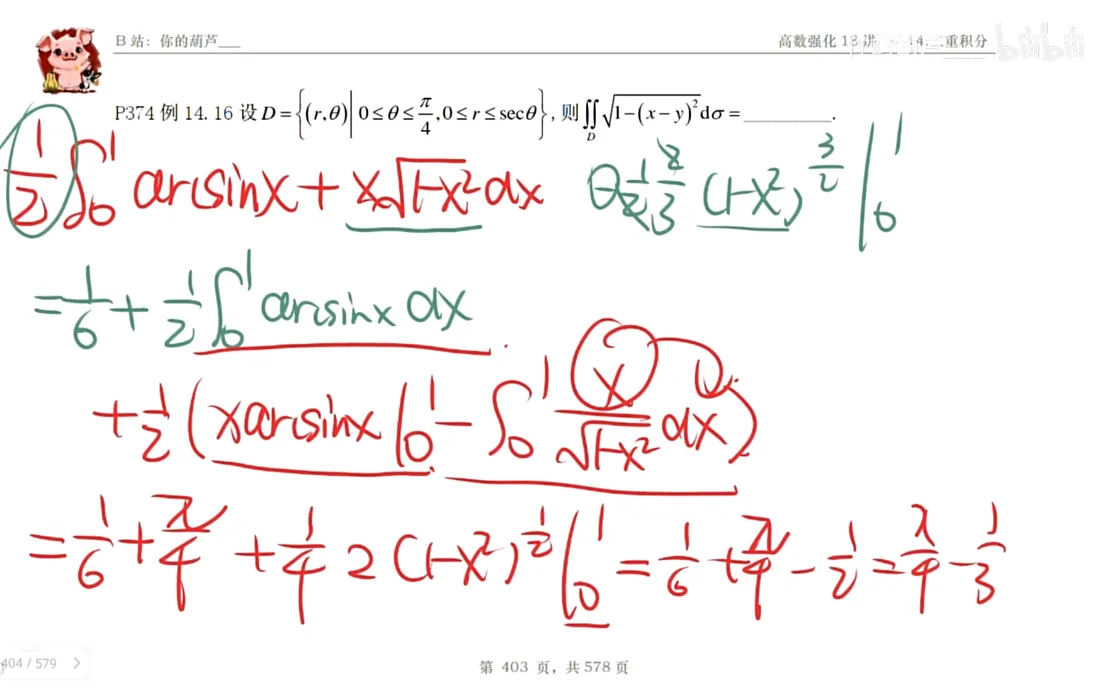 B 站：你的葫芦___
高数强化 18 讲
重积分
bilibili
P374 例 14.16 设 D = {(r,θ) | 0 ≤ θ ≤ π/4, 0 ≤ r ≤ secθ}, 则 ∬_D √(1−(x−y)²) dσ = ________.
1/2 ∫₀¹ arcsinx + x√(1-x²) dx
1/2 2/3 (1-x²)^(3/2) |₀¹
= 1/6 + 1/2 ∫₀¹ arcsinx dx
+ 1/2 (xarcsinx |₀¹ − ∫₀¹ x/√(1-x²) dx)
= 1/6 + π/4 + 1/4 2 (1-x²)^(1/2) |₀¹ = 1/6 + π/4 − 1/2 = π/4 − 1/3
404 / 579 >
第 403 页，共 578 页